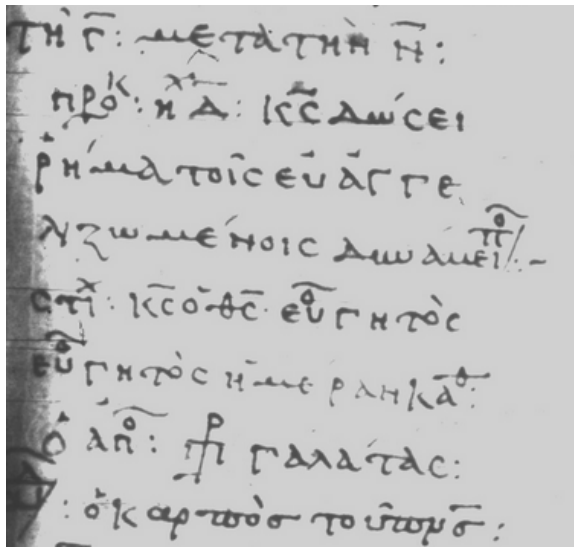 τῆ γ̅: μετὰ τὴν ν̅:
προκ: ἦχ δ̅: κ̅ς̅ δώσει
ῥήματοῖς εὐἀγγε
λιζωμένοις δωάμει π:-
στιχ: κ̅ς̅ ὁ θ̅ς̅ εὐγητὸς
εὐγητὸς ἡμέραν καθ:
ὁ ἀπο: πρ γαλάτας:
: ὁ καρπὸσ του π̅ν̅σ̅: